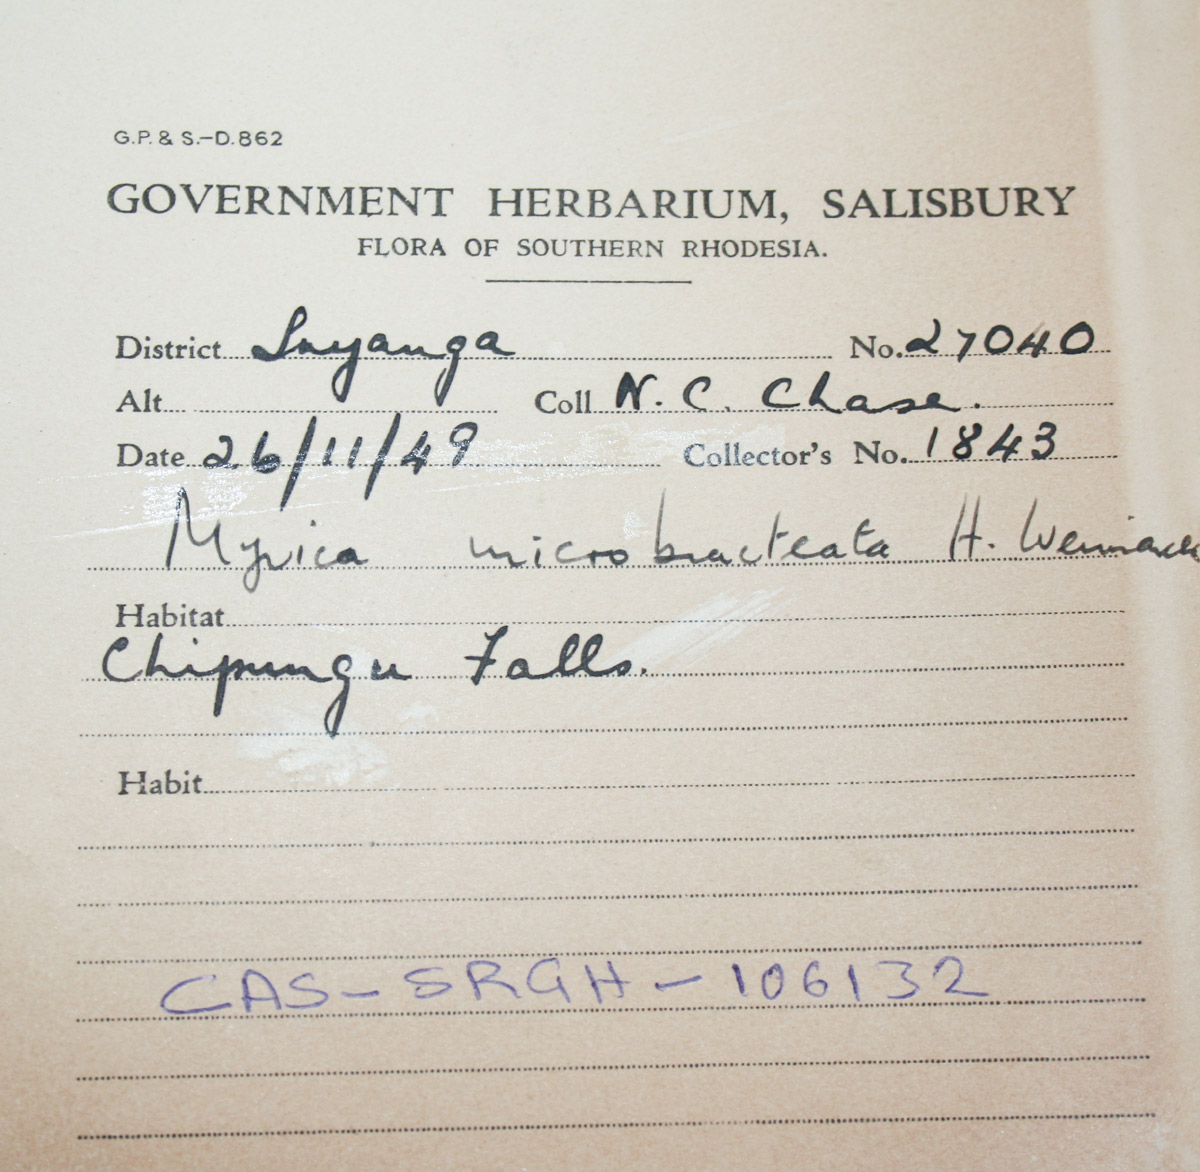 G.P. & S.—D.862
GOVERNMENT HERBARIUM, SALISBURY
FLORA OF SOUTHERN RHODESIA.
District Inyanga No. 27040
Alt Coll N. C. Chase.
Date 26/11/49 Collector's No. 1843
Myrica microbracteata H. Weimarck
Habitat
Chipungu Falls.
Habit
CAS-SRGH-106132